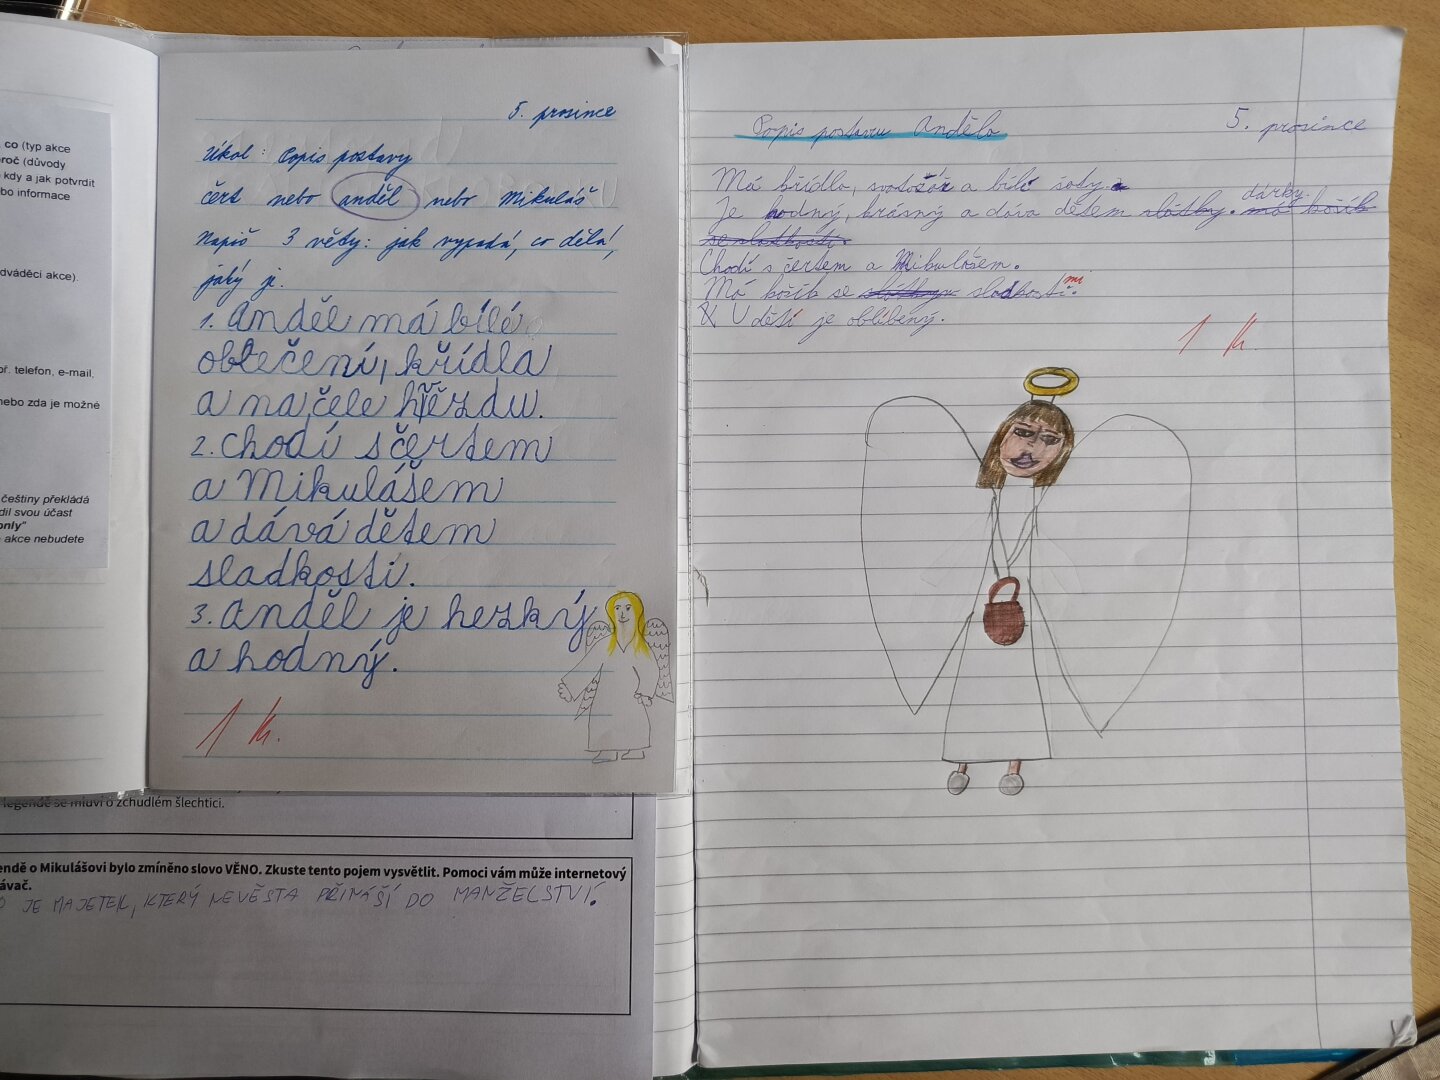 co (typ akce
roč (důvody
kdy a jak potvrdit
bo informace
dváděcí akce).
př. telefon, e-mail,
nebo zda je možné
češtiny překládá
dil svou účast
only"
akce nebudete
5. prosince
Úkol: Popis postavy
čert nebo anděl nebo Mikuláš
Napiš 3 věty: jak vypadá, co dělá,
jaký je.
1. Anděl má bílé
oblečení, křídla
a na čele hvězdu.
2. Chodí s čertem
a Mikulášem
a dává dětem
sladkosti.
3. Anděl je hezký
a hodný.
1 K.
legendě se mluví o zchudlém šlechtici.
endě o Mikulášovi bylo zmíněno slovo VĚNO. Zkuste tento pojem vysvětlit. Pomoci vám může internetový
ávač.
O JE MAJETEK, KTERÝ NEVĚSTA PŘINÁŠÍ DO MANŽELSTVÍ.
Popis postavy Anděla
5. prosince
Má křídla, svatozář a bílé šaty.
dárky.
Je hodný, krásný a dáva dětem sladky. má košík
se sladkosti.
Chodí s čertem a Mikulášem.
Má košík se sladkostmi.
U dětí je oblíbený.
1 K.